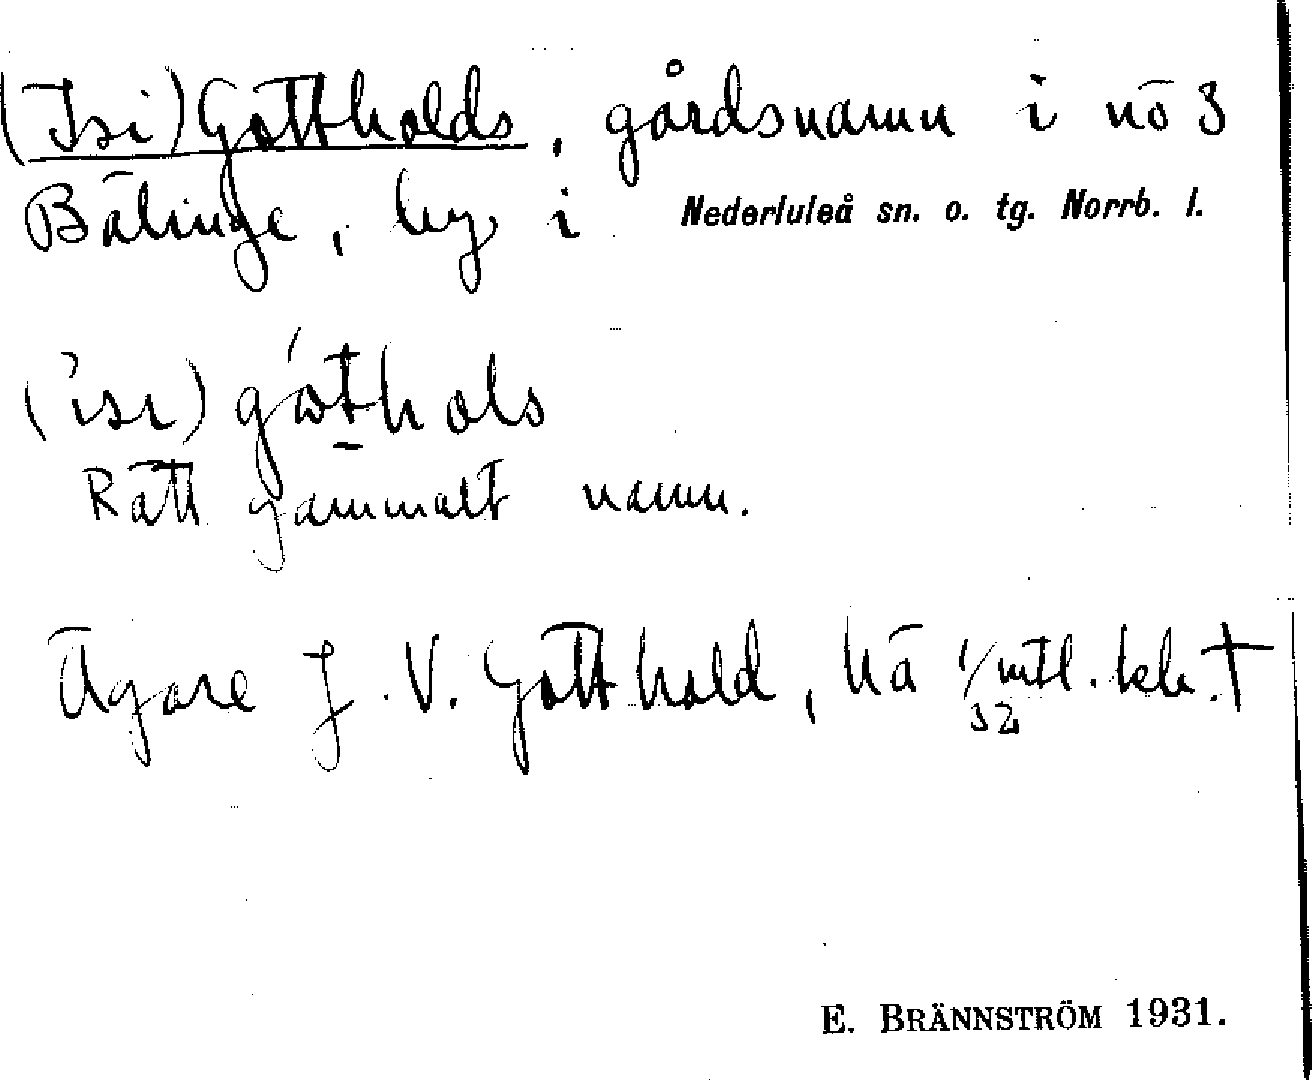 (Isi) Gottholds, gårdsnamn i nö 3
Bälinge, by i Nederluleå sn. o. tg. Norrb. l.
(isi) góthols
Rätt gammalt namn.
Ägare J. V. Gotthold, hä 1/32 mtl.
E. BRÄNNSTRÖM 1931.